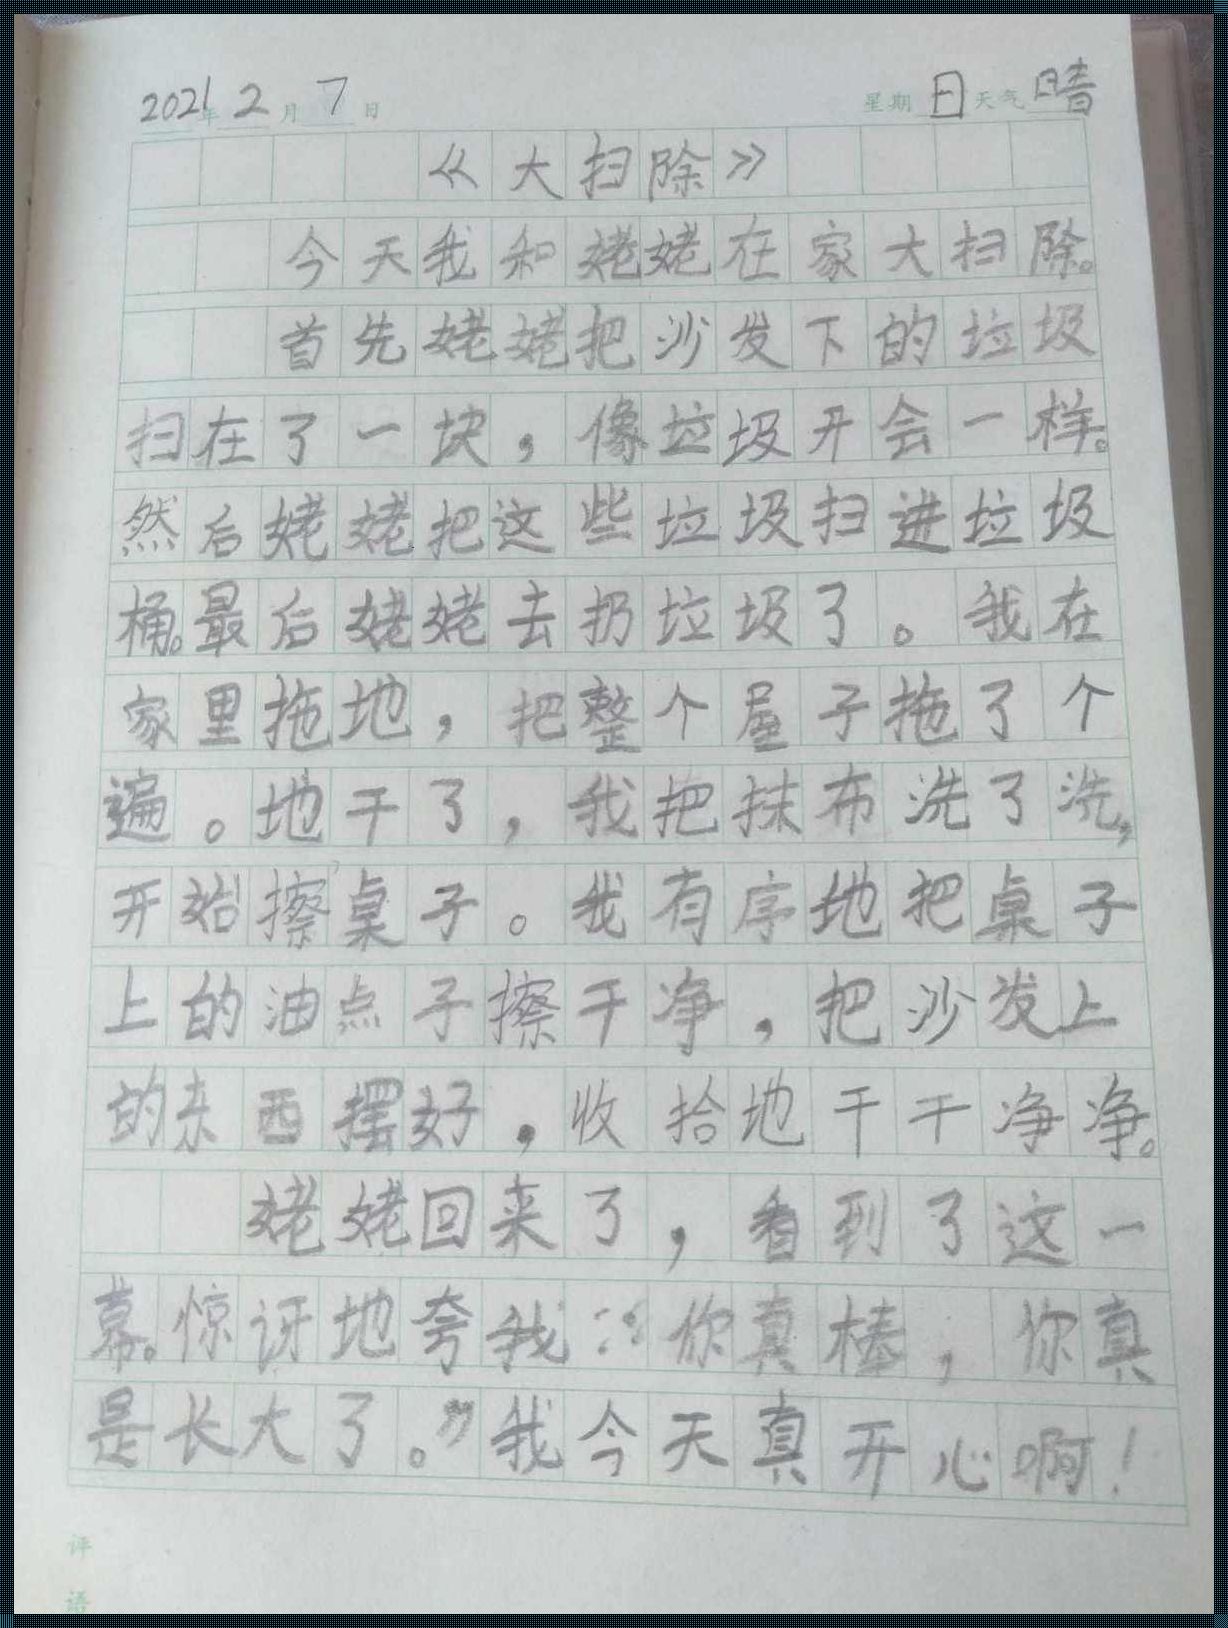 2021年2月7日 星期日天气晴
《大扫除》
今天我和姥姥在家大扫除。
首先姥姥把沙发下的垃圾
扫在了一块,像垃圾开会一样。
然后姥姥把这些垃圾扫进垃圾
桶。最后姥姥去扔垃圾了。我在
家里拖地,把整个屋子拖了个
遍。地干了,我把抹布洗了洗,
开始擦桌子。我有序地把桌子
上的油点子擦干净,把沙发上
的东西摆好,收拾地干干净净。
姥姥回来了,看到了这一
幕。惊讶地夸我:“你真棒,你真
是长大了。”我今天真开心啊!
评
语